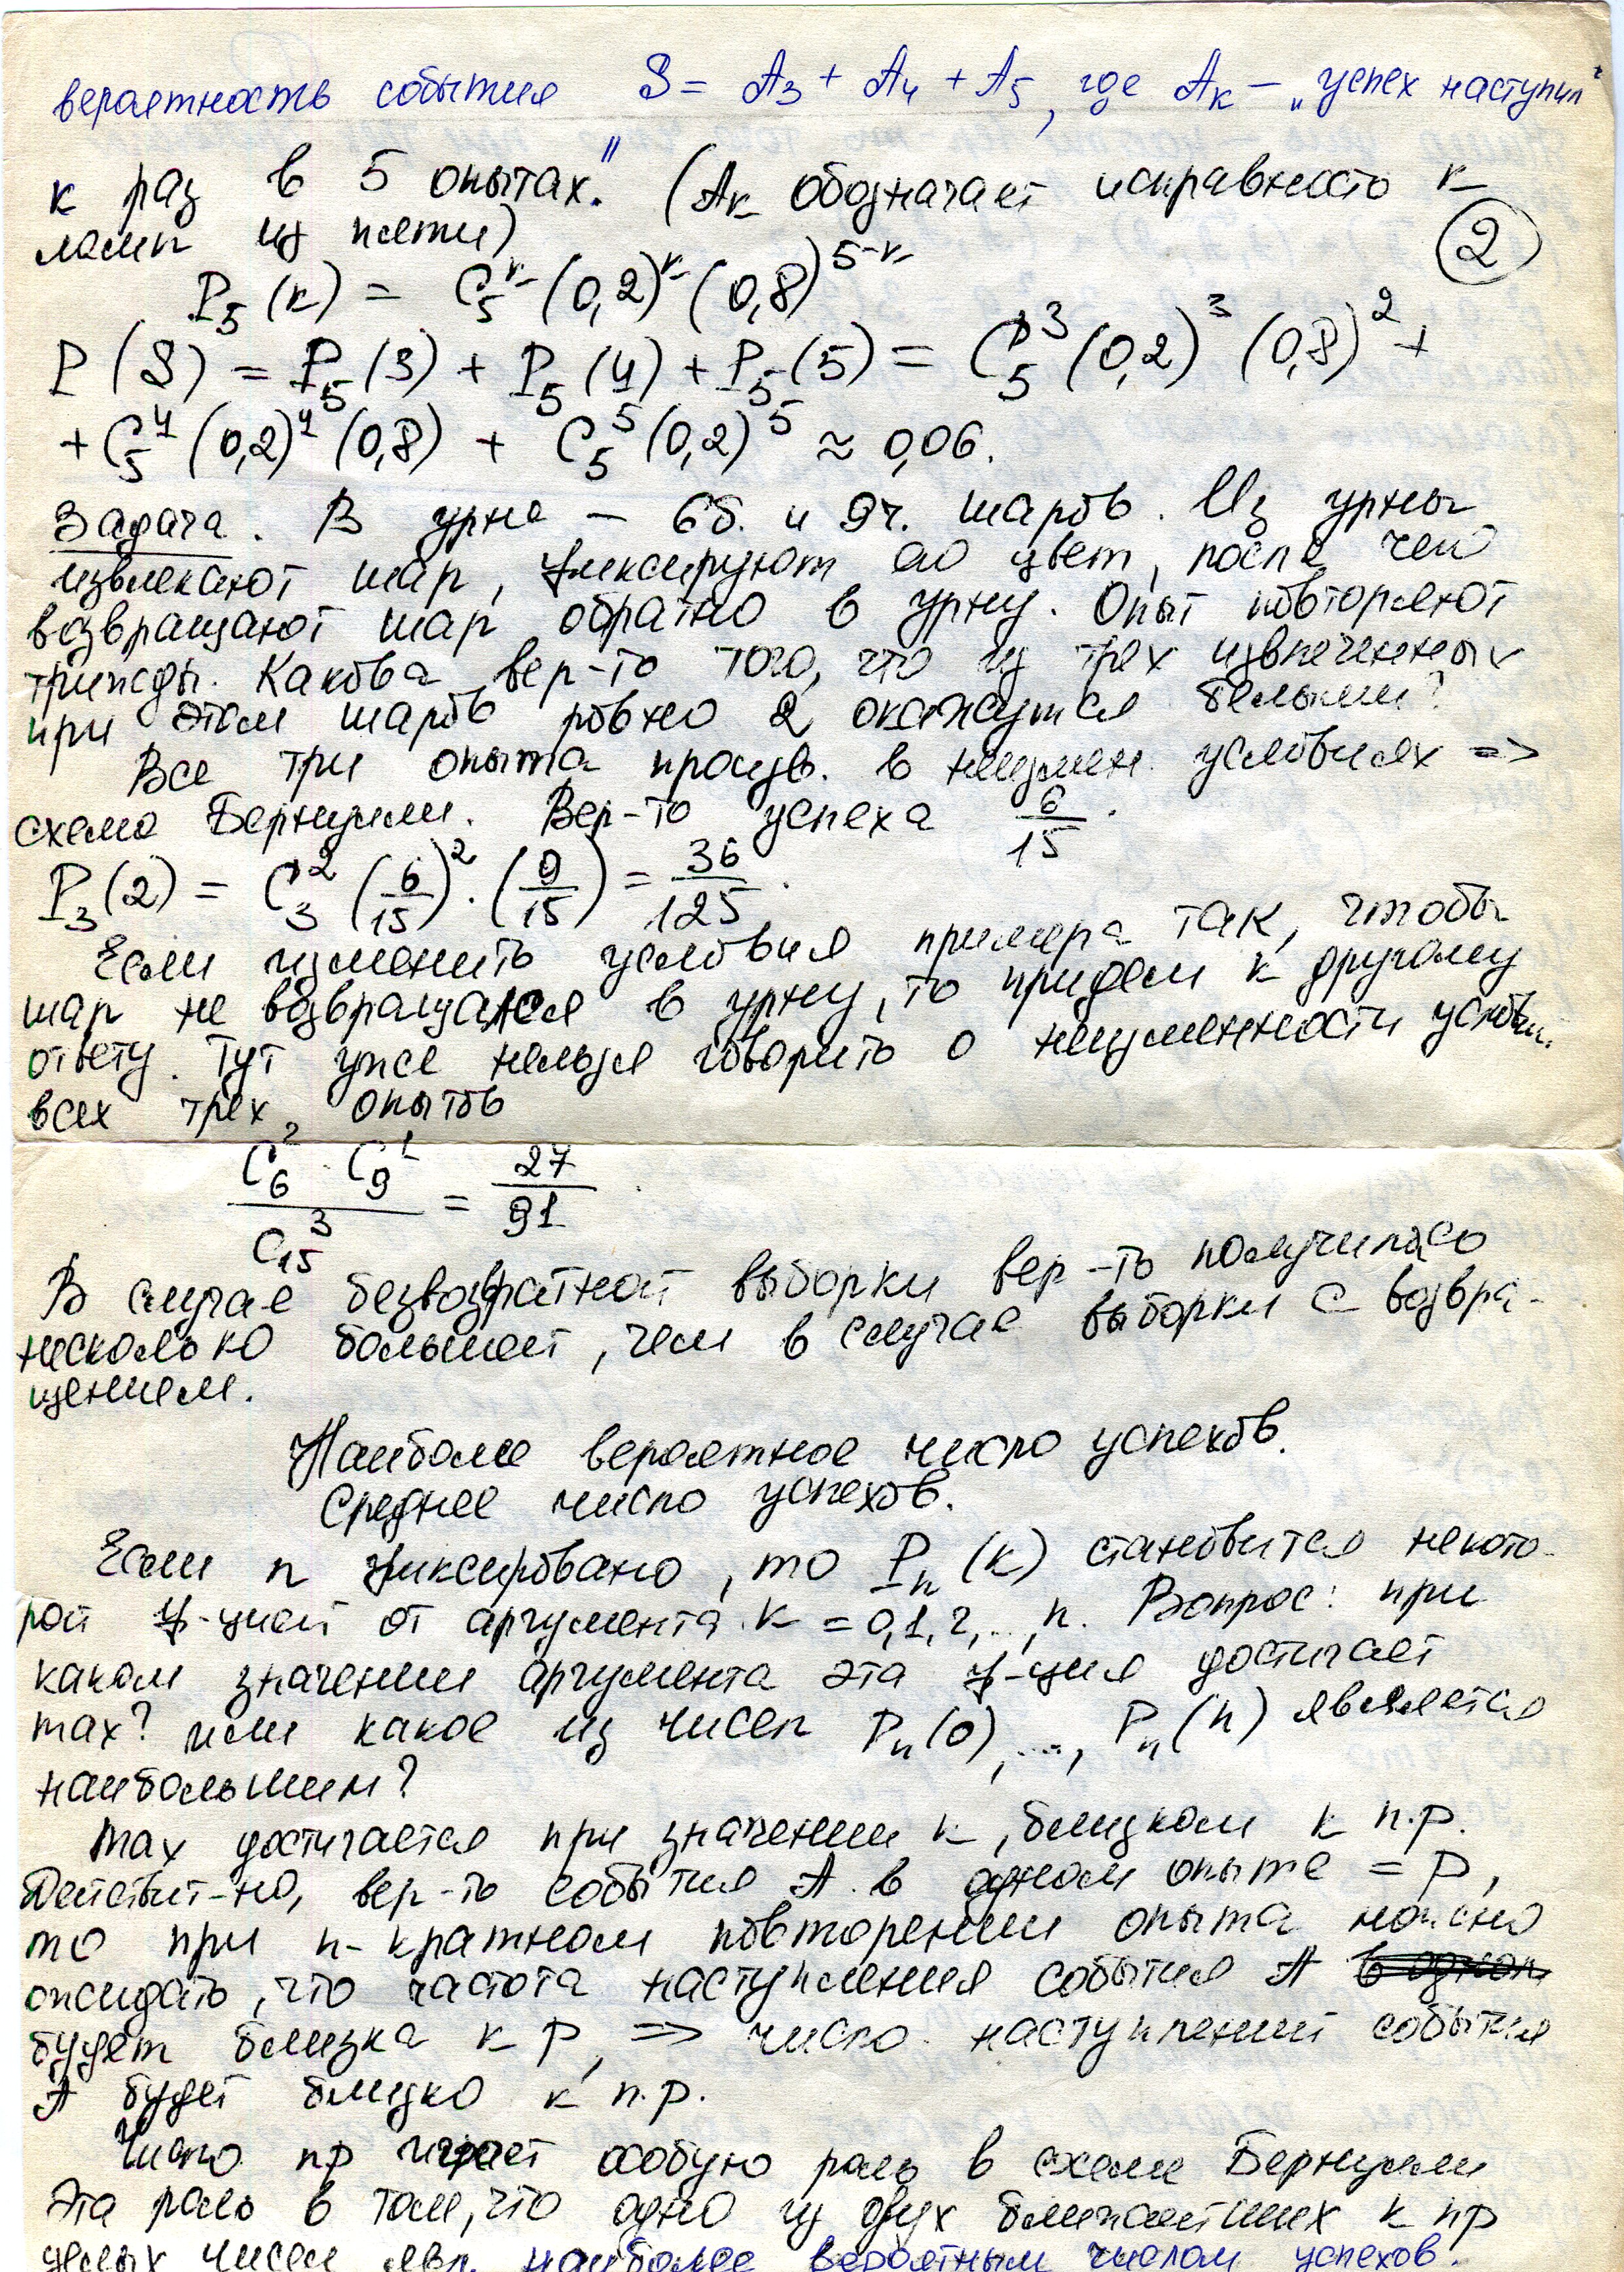 вероятность события S = A₃ + A₄ + A₅, где Aₖ – „успех наступил
к раз в 5 опытах." (Aₖ обозначает исправность к
ламп из пяти)
②
P₅(к) = C₅ᵏ (0,2)ᵏ (0,8)⁵⁻ᵏ
P(S) = P₅(3) + P₅(4) + P₅(5) = C₅³ (0,2)³ (0,8)² +
+ C₅⁴ (0,2)⁴ (0,8) + C₅⁵ (0,2)⁵ ≈ 0,06.
Задача. В урне – 6б. и 9ч. шаров. Из урны
извлекают шар, фиксируют его цвет, после чего
возвращают шар обратно в урну. Опыт повторяют
трижды. Какова вер-ть того, что из трех извлеченных
при этом шаров ровно 2 окажутся белыми?
Все три опыта произв. в неизмен. условиях =>
схема Бернулли. Вер-ть успеха 6/15.
P₃(2) = C₃² (6/15)² · (9/15) = 36/125.
Если изменить условия примера так, чтобы
шар не возвращался в урну, то придем к другому
ответу. Тут уже нельзя говорить о неизменности услови
всех трех опытов
C₆² · C₉¹ / C₁₅³ = 27/91.
В случае безвозвратной выборки вер-ть получилась
несколько большей, чем в случае выборки с возвра-
щением.
Наиболее вероятное число успехов.
Среднее число успехов.
Если n фиксировано, то Pₙ(к) становится некото-
рой ф-цией от аргумента к = 0,1,2,...,n. Вопрос: при
каком значении аргумента эта ф-ция достигает
max? или какое из чисел Pₙ(0),..., Pₙ(n) является
наибольшим?
Max достигается при значении к, близком к n.p.
Действит-но, вер-ть события A в одном опыте = P,
то при n-кратном повторении опыта можно
ожидать, что частота наступления события A
будет близка к p, => число наступлений события
A будет близко к n.p.
Число np играет особую роль в схеме Бернулли
Эта роль в том, что одно из двух ближайших к np
целых чисел явл. наиболее вероятным числом успехов.